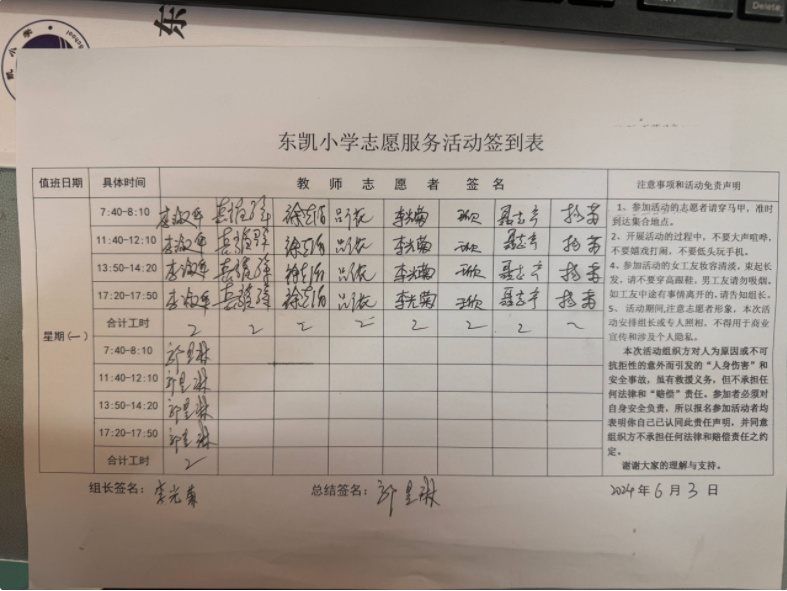 凯小学
东
Delete
东凯小学志愿服务活动签到表
值班日期 具体时间 教师志愿者签名 注意事项和活动免责声明
7:40-8:10 吕依 李光菊 王欣 杨菊
11:40-12:10 吕依 李光菊 王欣 杨菊
13:50-14:20 吕依 李光菊 王欣 杨菊
17:20-17:50 吕依 李光菊 王欣 杨菊
合计工时 2 2 2 2 2 2 2 2
星期(一)
7:40-8:10
11:40-12:10
13:50-14:20
17:20-17:50
合计工时 2
1、参加活动的志愿者请穿马甲，准时
到达集合地点。
2、开展活动的过程中，不要大声喧哗，
不要嬉戏打闹，不要低头玩手机。
4、参加活动的女工友妆容清淡，束起长
发，请不要穿高跟鞋，男工友请勿吸烟，
如工友中途有事情离开的，请告知组长。
5、活动期间，注意志愿者形象，本次活
动安排组长或专人照相，不得用于商业
宣传和涉及个人隐私。
本次活动组织方对人为原因或不可
抗拒性的意外而引发的“人身伤害”和
安全事故，虽有救援义务，但不承担任
何法律和“赔偿”责任。参加者必须对
自身安全负责，所以报名参加活动者均
表明你自己已认同此责任声明，并同意
组织方不承担任何法律和赔偿责任之约
定。
谢谢大家的理解与支持。
组长签名：李光菊 总结签名： 2024年6月3日